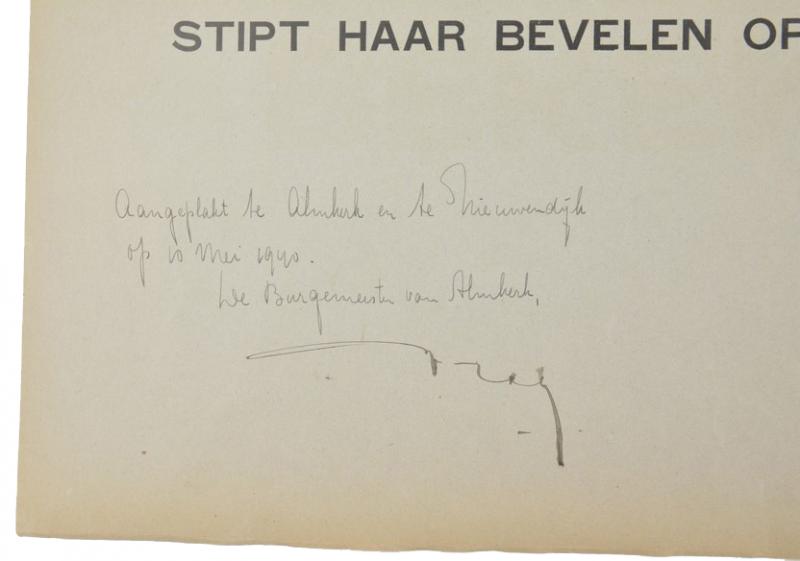 STIPT HAAR BEVELEN OP
Aangeplakt te Almkerk en te Nieuwendijk
op 10 Mei 1940.
De Burgemeester van Almkerk,